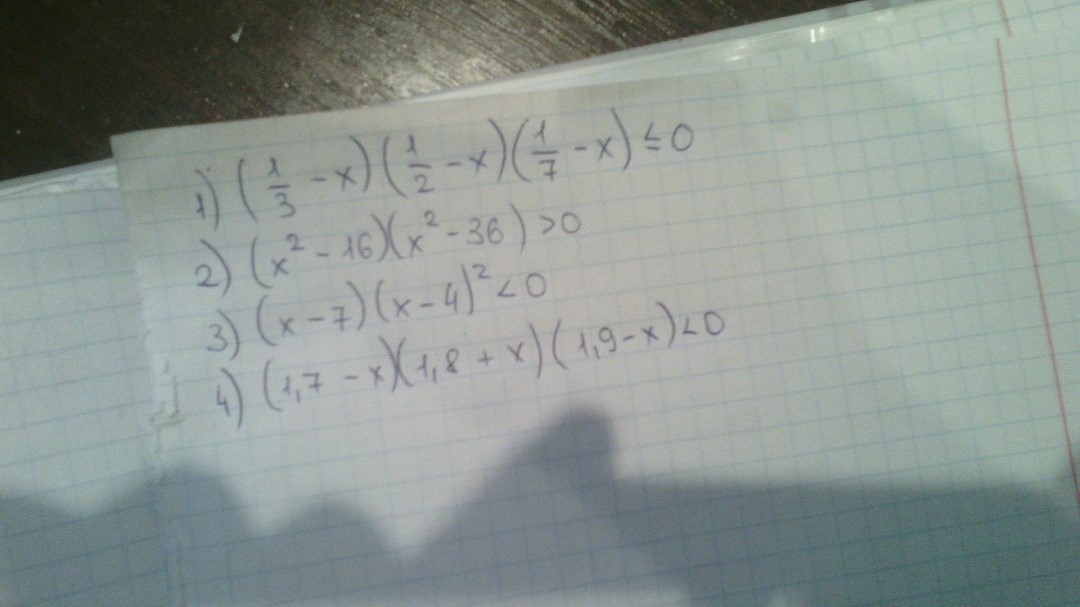 1) (1/3 - x)(1/2 - x)(1/7 - x) ≤ 0
2) (x² - 16)(x² - 36) > 0
3) (x - 7)(x - 4)² < 0
4) (1,7 - x)(1,8 + x)(1,9 - x) < 0